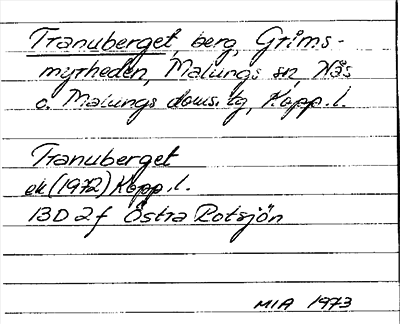 Tranuberget, berg, Grims-
myrheden, Malungs sn, Nås
o. Malungs doms. tg, Kopp. l.
Tranuberget
ek (1972) Kopp. l.
13D 2f Östra Rotsjön
MIA 1973